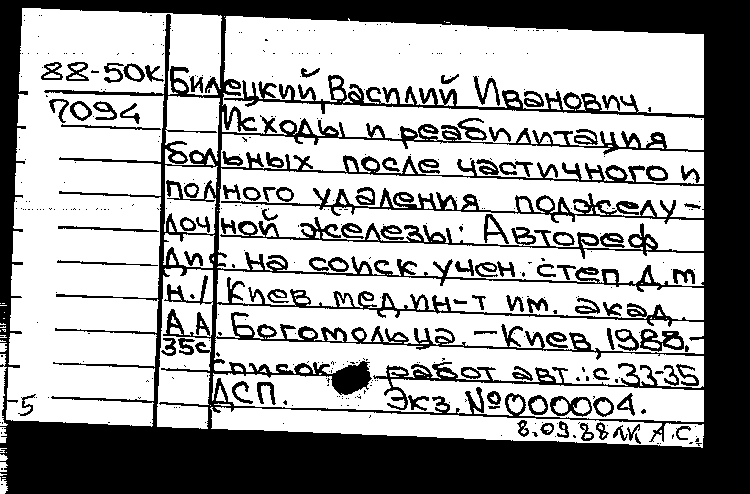 88-50к Билецкий, Василий Иванович.
7094 Исходы и реабилитация
больных после частичного и
полного удаления поджелу-
дочной железы: Автореф
дис. на соиск. учен. степ. д. м.
н. / Киев. мед. ин-т им. акад.
А.А. Богомольца. – Киев, 1988. –
35с.
список работ авт.: с. 33-35
ДСП. Экз. №000004.
5
8.09.88 А.С.